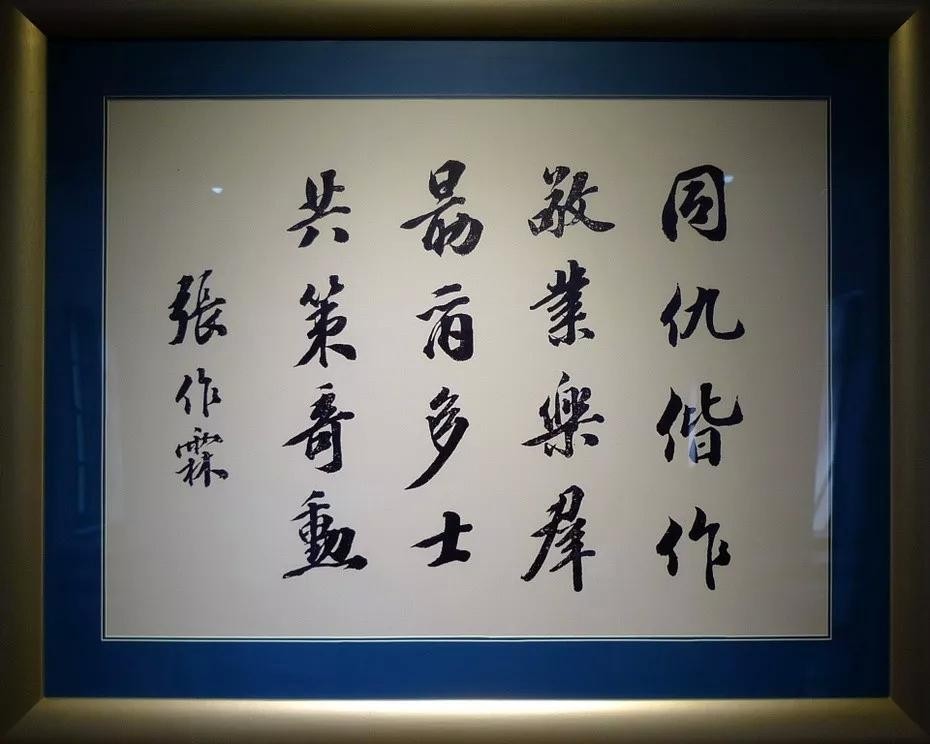 同仇偕作
敬業樂羣
勗爾多士
共策奇勳
張作霖